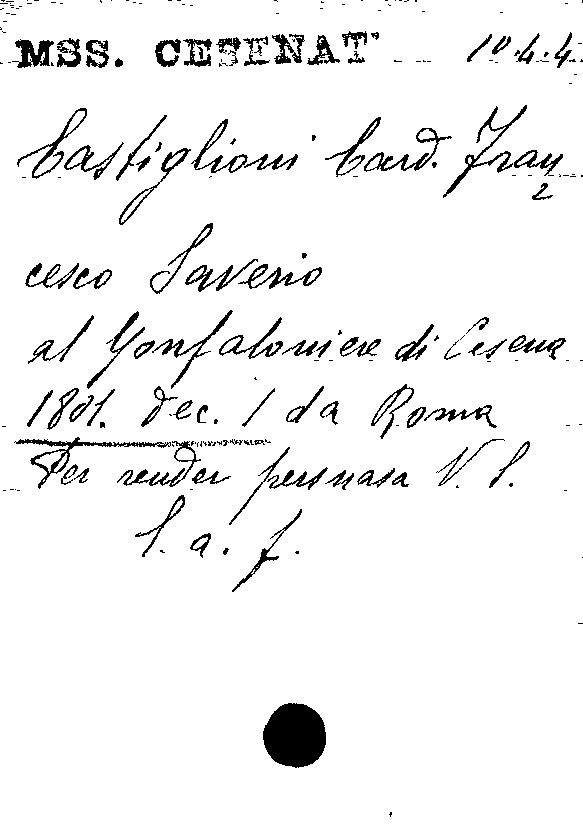 MSS. CESENAT' 10.4.4
Castiglioni Card. Fran
2
cesco Saverio
al Gonfaloniere di Cesena
1821. Dec. 1 da Roma
Per render persuasa V. S.
S. a. f.